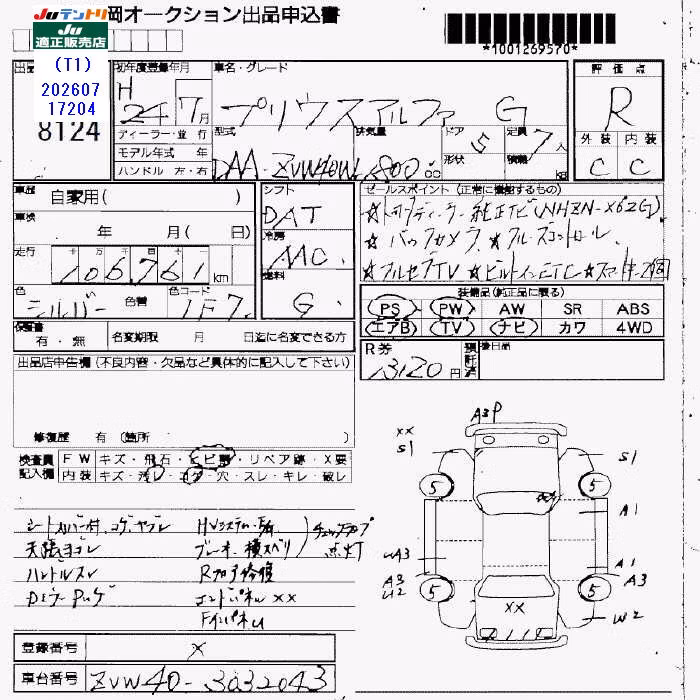 Juテントリ
Ju
適正販売店
岡オークション出品申込書
*1001269570*
(T1)
202607
17204
8124
初年度登録年月
H
24 7月
ディーラー・並行
モデル年式 年
ハンドル 左・右
車名・グレード
プリウスアルファ G
型式
DAA-ZVW40W
排気量
1800 cc
ドア
5
形状
定員
7人
積載
kg
評価点
R
外装 内装
C C
車歴
自家用( )
車検
年 月( 日)
走行
十 万 千 百 十
106761km
色
シルバー
色替
色コード
1F7
シフト
DAT
冷房
AAC
燃料
G
セールスポイント (正常に機能するもの)
☆バックカメラ ☆クルーズコントロール
☆フルセグTV ☆ビルトインETC ☆スマートキー2個
装備品(純正品に限る)
PS PW AW SR ABS
エアB TV ナビ カワ 4WD
保証書
有・無
名変期限 月 日迄に名変できる方
R券
13120円
預託済
後日品
出品店申告欄(不良内容・欠品など具体的に記入して下さい)
修復歴 有 (箇所 )
検査員記入欄
FW キズ・飛石・ヒビ割・リペア跡・X要
内装 キズ・汚レ・コゲ・穴・スレ・キレ・破レ
シートカバー付、コゲ、ヤブレ
天張ヨゴレ
ハンドルスレ
HVシステム
ブレーキ・横スベリ
チェックランプ
点灯
エンドパネル XX
Fインパネル
A3 P
XX
S1
S1
5
5
A1
A1
UA3
A3
U2
A3
5
5
XX
W2
登録番号
X
車台番号
ZVW40-3032043